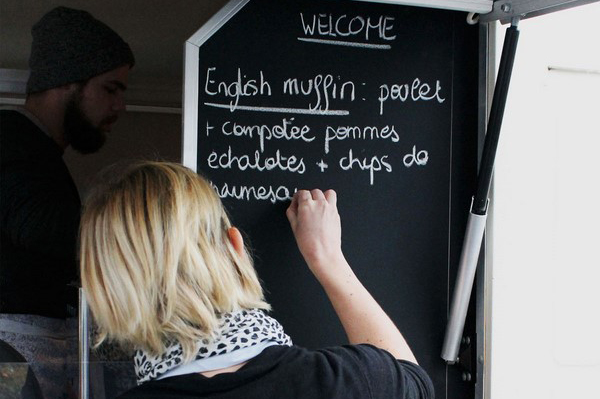 WELCOME
English muffin : poulet
+ compotée pommes
échalotes + chips de